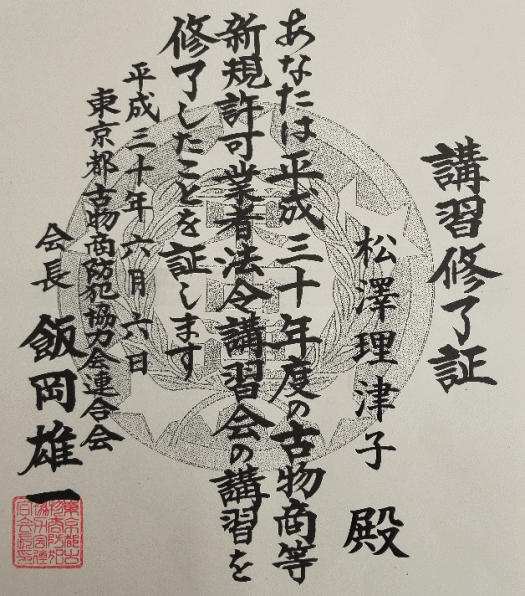 講習修了証
松澤理津子 殿
あなたは平成三十年度の古物商等
新規許可業者法令講習会の講習を
修了したことを証します
平成三十年六月六日
東京都古物商防犯協力会連合会
会長 飯岡雄一